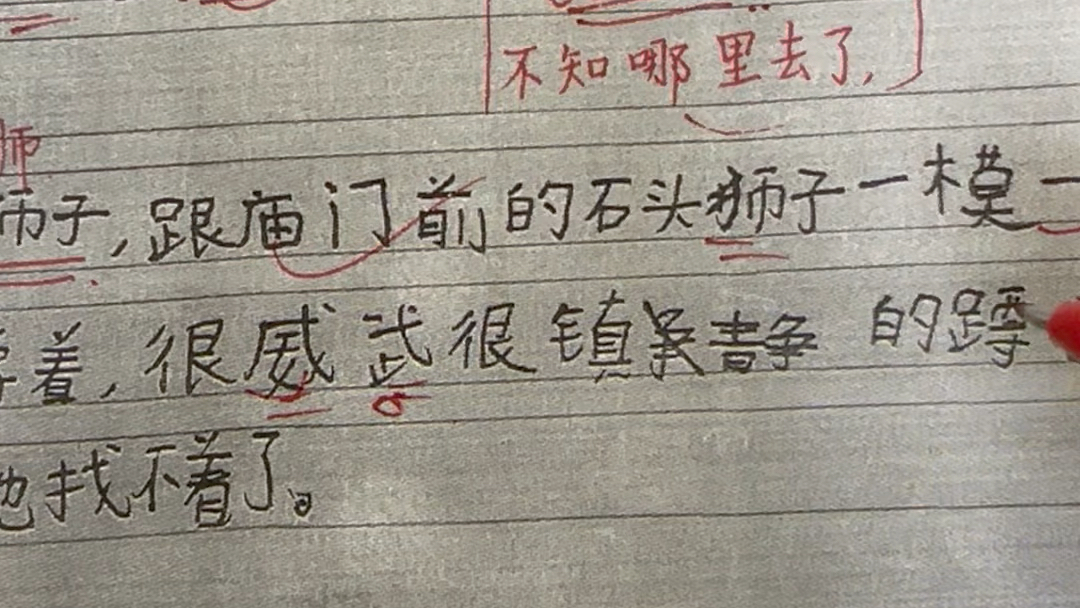 不知哪里去了,
师
师子,跟庙门前的石头狮子一模一
着,很威武很镇静的蹲
他找不着了。